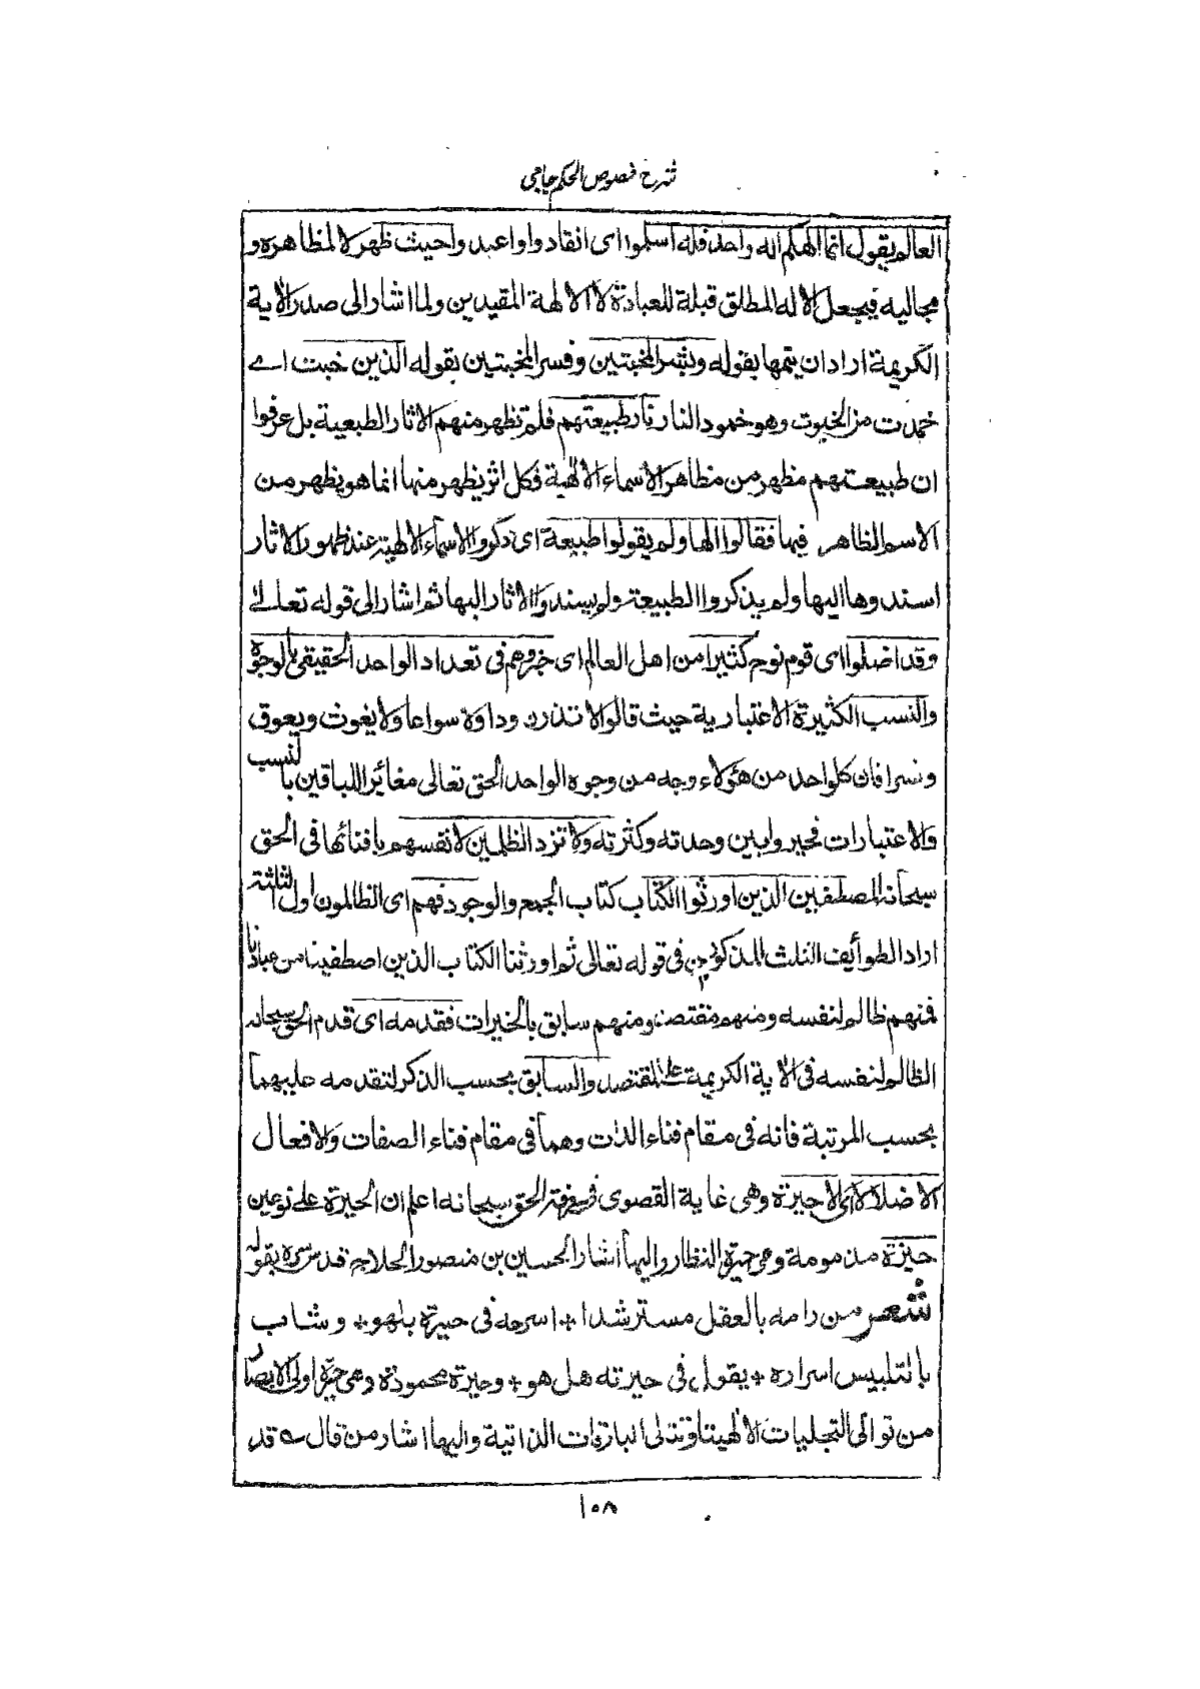 شرح فصوص الحكم جامي
العالم يقول انما الهكم اله واحد فله اسلموا اى انقادوا واعبدوا حيث ظهر لا لمظاهره و
مجاليه فيجعل الاله المطلق قبلة للعبادة لا الالهة المقيدين ولما اشار الى صدر الآية
الكريمة اراد ان يتمها بقوله وبشر المخبتين وفسر المخبتين بقوله الذين خبت اے
خمدت من الخبوت وهو خمود النار نار طبيعتهم فلم تظهر منهم الاثار الطبعية بل عرفوا
ان طبيعتهم مظهر من مظاهر الاسماء الالهية فكل اثر يظهر منها انما هو يظهر من
الاسم الظاهر فيها فقالوا الها ولم يقولوا طبيعة اى ذكروا الاسماء الالهية عند ظهور الاثار
اسندوها اليها ولم يذكروا الطبيعة ولم يسندوا الاثار اليها ثم اشار الى قوله تعالى
وقد اضلوا اى قوم نوح كثيرا من اهل العالم اى خيروهم فى تعداد الواحد الحقيقى بالوجوه
والنسب الكثيرة الاعتبارية حيث قالوا لا تذرن ودا وة سواعا ولا يغوث ويعوق
ونسرا فان كل واحد من هؤلاء وجه من وجوه الواحد الحق تعالى مغائر اللباقين بالنسب
والاعتبارات فحيروا بين وحدته وكثرته ولا تزد الظلمين لانفسهم بافنائها فى الحق
سبحانه المصطفين الذين اورثوا الكتاب كتاب الجمع والوجود فهم اى الظالمون اول الثلثة
اراد الطوائف الثلث المذكورين فى قوله تعالى ثم اورثنا الكتاب الذين اصطفينا من عبادنا
فمنهم ظالم لنفسه ومنهم مقتصد ومنهم سابق بالخيرات فقدمه اى قدم الحق سبحانه
الظالم لنفسه فى الآية الكريمة على المقتصد والسابق بحسب الذكر لتقدمه عليهما
بحسب المرتبة فانه فى مقام فناء الذات وهما فى مقام فناء الصفات والافعال
الا ضلالا اى الا حيرة وهى غاية القصوى فى معرفة الحق سبحانه اعلم ان الحيرة على نوعين
حيرة مذمومة وهى حيرة النظار واليها اشار الحسين بن منصور الحلاج قدس سره بقوله
شعر من رامه بالعقل مسترشدا * اسرحه فى حيرة يلهو * وشاب
بالتلبيس اسراره * يقول فى حيرته هل هو * وحيرة محمودة وهى حيرة اولى الابصار
من توالى التجليات الالهية وتتالى البارقات الذاتية واليها اشار من قال ے قد
١٠٨